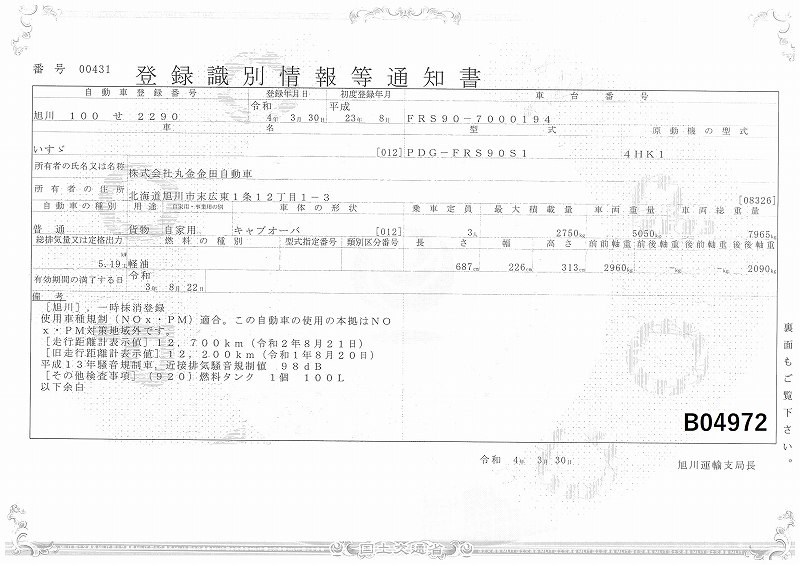 番号 00431 登録識別情報等通知書
自動車登録番号 登録年月日 初度登録年月 車台番号
旭川 100 せ 2290 令和 4年 3月 30日 平成 23年 8月 FRS90-7000194
車名 型式 原動機の型式
いすゞ [012] PDG-FRS90S1 4HK1
所有者の氏名又は名称 株式会社丸金金田自動車
所有者の住所 北海道旭川市末広東1条12丁目1-3 [08326]
自動車の種別 用途 自家用・事業用の別 車体の形状 乗車定員 最大積載量 車両重量 車両総重量
普通 貨物 自家用 キャブオーバ [012] 3人 2750kg 5050kg 7965kg
総排気量又は定格出力 燃料の種別 型式指定番号 類別区分番号 長さ 幅 高さ 前前軸重 前後軸重 後前軸重 後後軸重
5.19 kW L 軽油 687cm 226cm 313cm 2960kg -kg -kg 2090kg
有効期間の満了する日 令和 3年 8月 22日
備考
[旭川],一時抹消登録
使用車種規制(NOx・PM)適合。この自動車の使用の本拠はNO
x・PM対策地域外です。
[走行距離計表示値]12,700km(令和2年8月21日)
[旧走行距離計表示値]12,200km(令和1年8月20日)
平成13年騒音規制車,近接排気騒音規制値 98dB
[その他検査事項](920)燃料タンク 1個 100L
以下余白
B04972
裏面もご覧下さい。
令和 4年 3月 30日 旭川運輸支局長
国土交通省